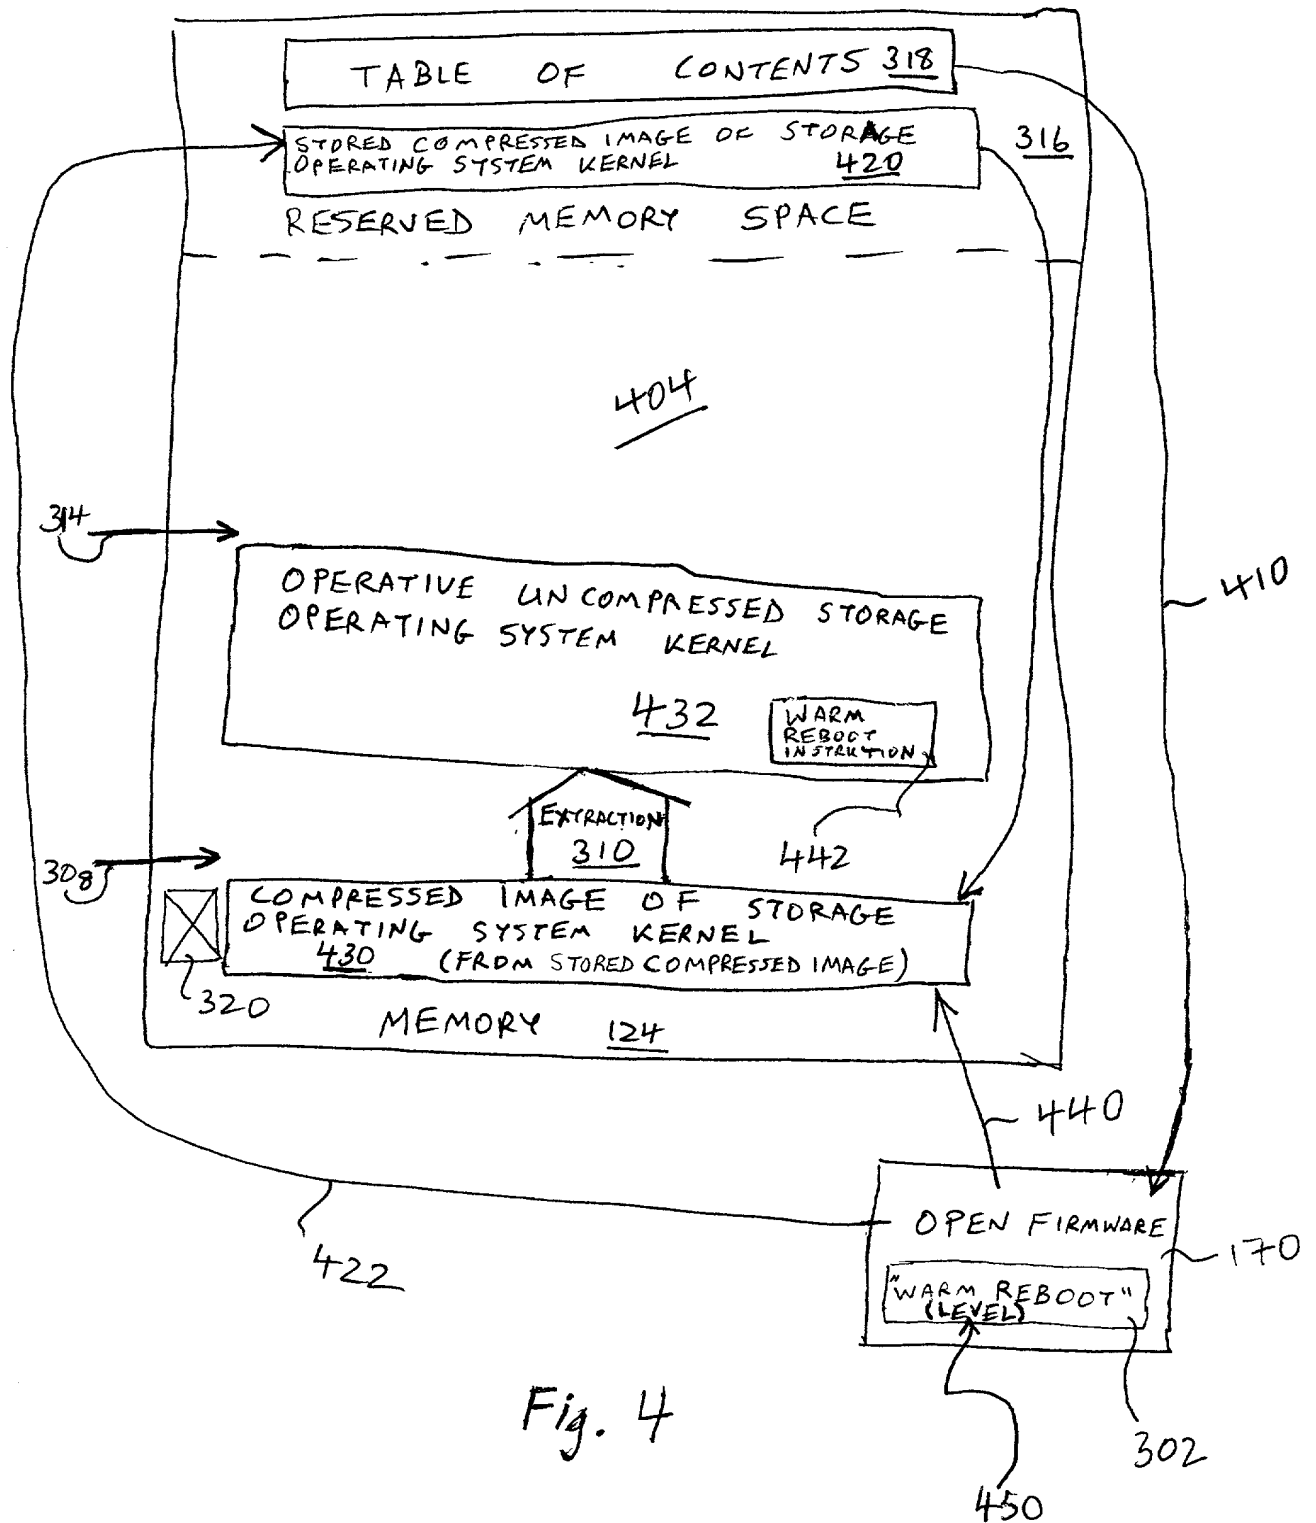 TABLE OF CONTENTS 318
STORED COMPRESSED IMAGE OF STORAGE
OPERATING SYSTEM KERNEL 420
316
RESERVED MEMORY SPACE
404
314
410
OPERATIVE UNCOMPRESSED STORAGE
OPERATING SYSTEM KERNEL
432
WARM
REBOOT
INSTRUCTION
EXTRACTION
310
442
308
COMPRESSED IMAGE OF STORAGE
OPERATING SYSTEM KERNEL
430 (FROM STORED COMPRESSED IMAGE)
320
MEMORY 124
440
OPEN FIRMWARE
170
422
"WARM REBOOT"
(LEVEL)
Fig. 4
302
450